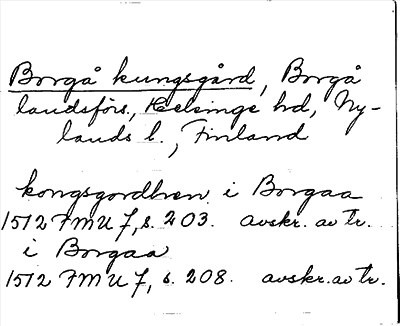 Borgå kungsgård, Borgå
landsförs., Helsinge hd, Ny-
lands l., Finland
kongsgordhen i Borgaa
1512 FMU 7, s. 203. avskr. av tr.
i Borgaa
1512 FMU 7, s. 208. avskr. av tr.